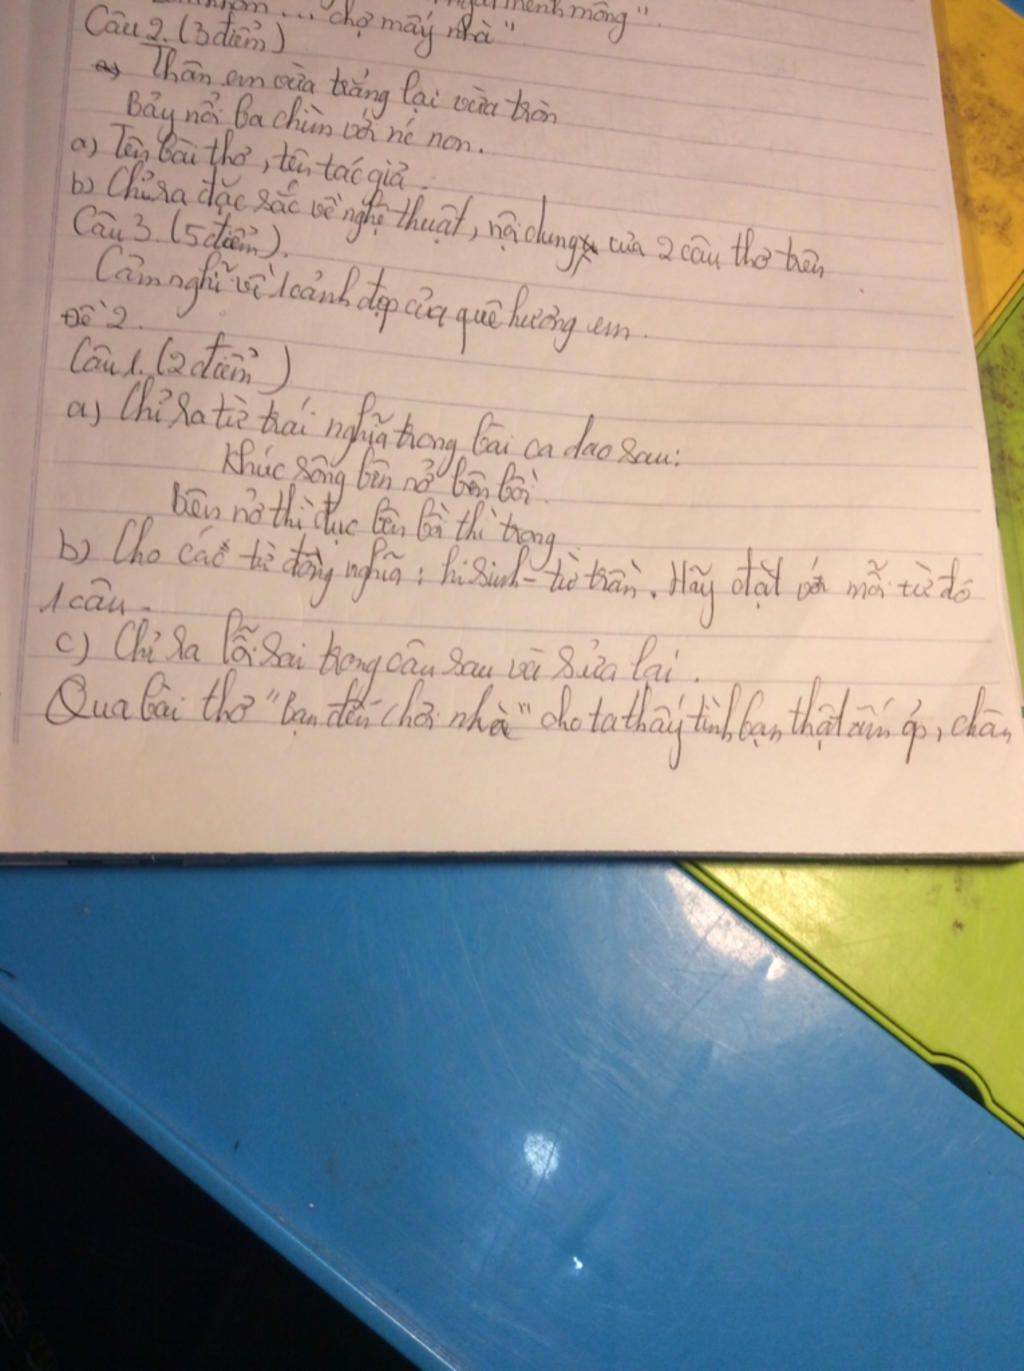 ... chợ mấy nhà" mênh mông".
Câu 2. (3 điểm)
Thân em vừa trắng lại vừa tròn
Bảy nổi ba chìm với nc non.
a) Tên bài thơ, tên tác giả.
b) Chỉ ra đặc sắc về nghệ thuật, nội dung của 2 câu thơ trên
Câu 3. (5 điểm).
Cảm nghĩ về 1 cảnh đẹp của quê hương em.
Đề 2.
Câu 1. (2 điểm)
a) Chỉ ra từ trái nghĩa trong bài ca dao sau:
Khúc sông bên nở bên bồi.
bên nở thì đục bên bồi thì trong
b) Cho các từ đồng nghĩa: hi sinh - từ trần. Hãy đặt với mỗi từ đó
1 câu.
c) Chỉ ra lỗi sai trong câu sau và sửa lại.
Qua bài thơ "bạn đến chơi nhà" cho ta thấy tình bạn thật ấm áp, chân